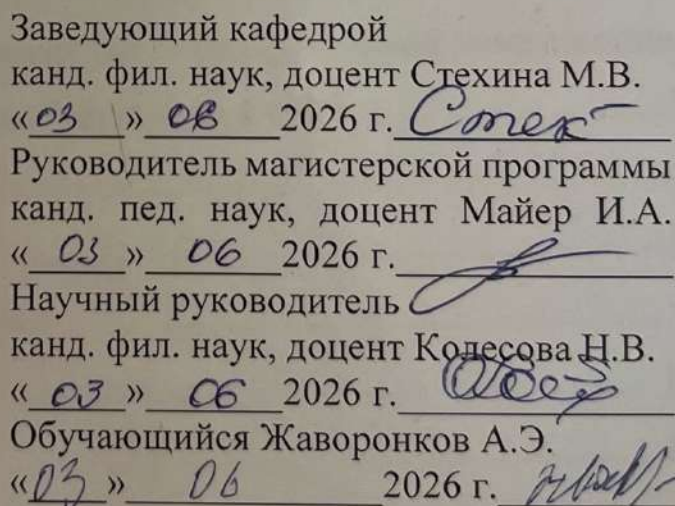 Заведующий кафедрой
канд. фил. наук, доцент Стехина М.В.
«03» 06 2026 г. Стех
Руководитель магистерской программы
канд. пед. наук, доцент Майер И.А.
«03» 06 2026 г.
Научный руководитель
канд. фил. наук, доцент Колесова Н.В.
«03» 06 2026 г.
Обучающийся Жаворонков А.Э.
«03» 06 2026 г.